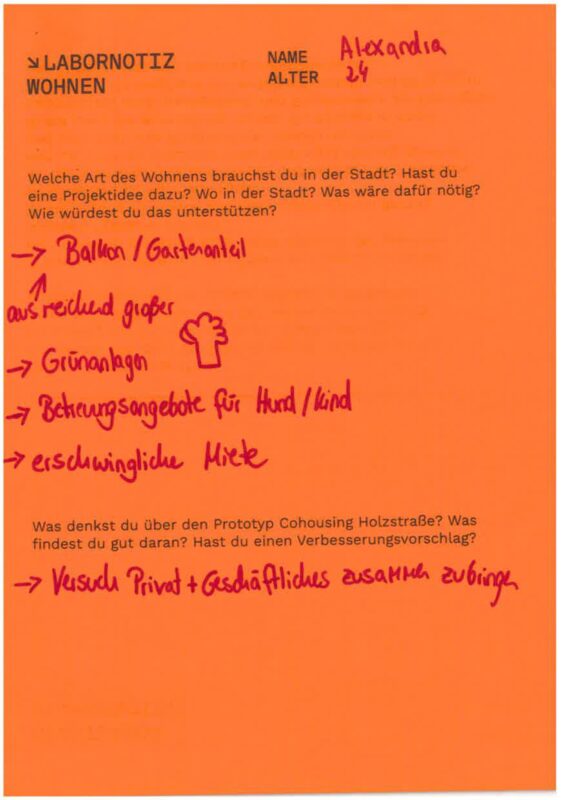 ↘ LABORNOTIZ
WOHNEN
NAME Alexandra
ALTER 24
Welche Art des Wohnens brauchst du in der Stadt? Hast du
eine Projektidee dazu? Wo in der Stadt? Was wäre dafür nötig?
Wie würdest du das unterstützen?
→ Balkon / Gartenanteil
↑
ausreichend großer
→ Grünanlagen
→ Betreuungsangebote für Hund / Kind
→ erschwingliche Miete
Was denkst du über den Prototyp Cohousing Holzstraße? Was
findest du gut daran? Hast du einen Verbesserungsvorschlag?
→ Versuch Privat + Geschäftliches zusammen zubringen